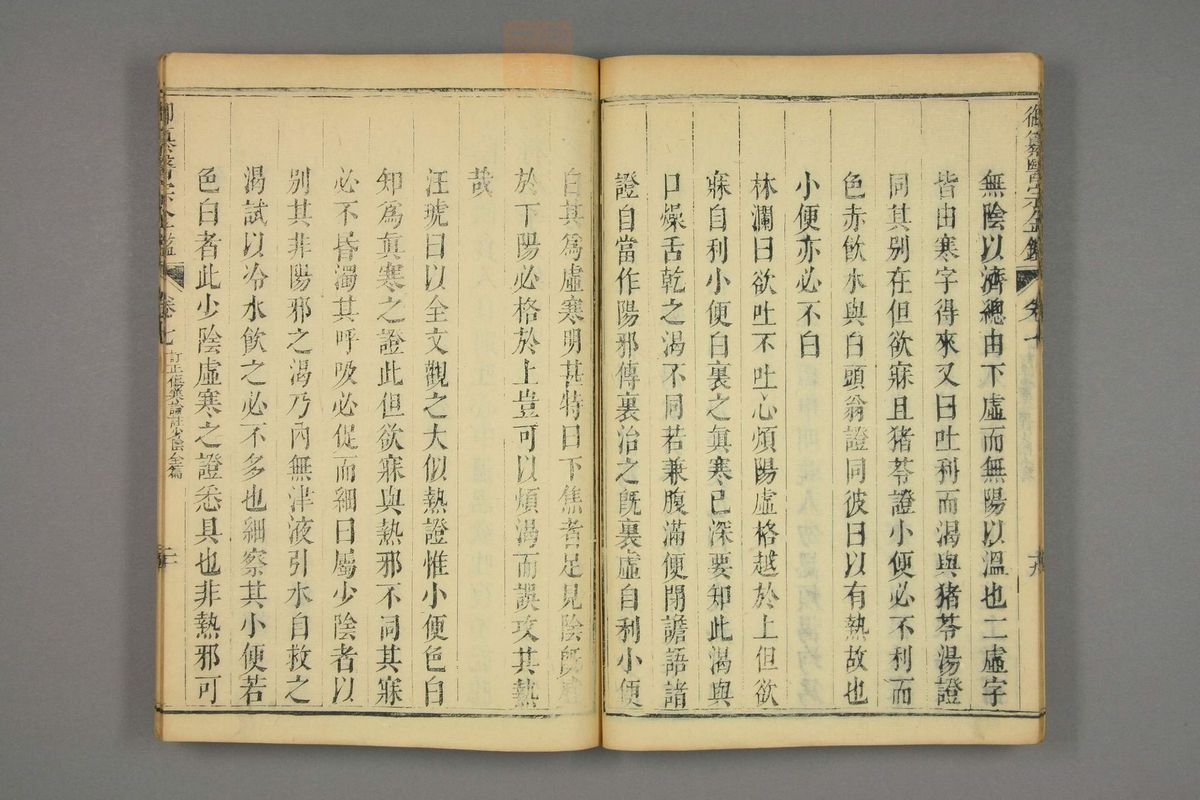 御纂醫宗金鑑
卷七
無陰以濟總由下虛而無陽以溫也二虛字
皆由寒字得來又曰吐利而渴與猪苓湯證
同其别在但欲寐且猪苓證小便必不利而
色赤飲水與白頭翁證同彼曰以有熱故也
小便亦必不白
林瀾曰欲吐不吐心煩陽虛格越於上但欲
寐自利小便白裏之眞寒已深要知此渴與
口燥舌乾之渴不同若兼腹滿便閉譫語諸
證自當作陽邪傳裏治之旣裏虛自利小便
白其爲虛寒明甚特曰下焦者足見陰旣盛
於下陽必格於上豈可以煩渴而誤攻其熱
哉
汪琥曰以全文觀之大似熱證惟小便色白
知爲眞寒之證此但欲寐與熱邪不同其寐
必不昏濁其呼吸必促而細曰屬少陰者以
别其非陽邪之渴乃內無津液引水自救之
渴試以冷水飲之必不多也細察其小便若
色白者此少陰虛寒之證悉具也非熱邪可
御纂醫宗金鑑
卷七
訂正傷寒論註少陰全篇